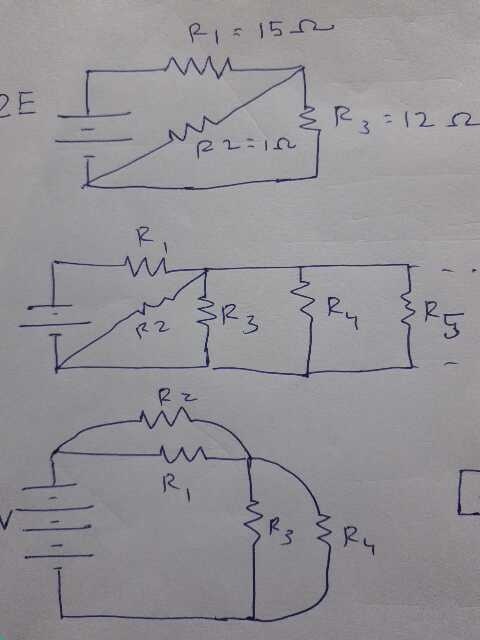 R1 = 15 Ω
2E
R2 = 1Ω
R3 = 12 Ω
R1
R2
R3
R4
R5
R2
R1
V
R3
R4